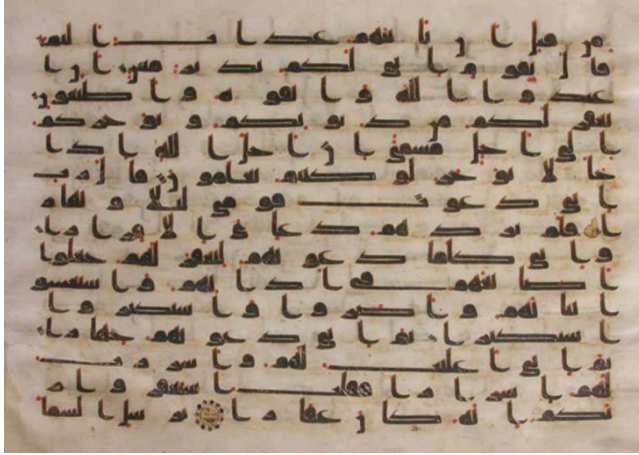 من قبل ان ياتيهم عذاب اليم
قال يقوم اني لكم نذير مبين ان ا
عبدوا الله واتقوه واطيعون
يغفر لكم من ذنوبكم ويوخركم
الى اجل مسمى ان اجل الله اذا
جا لا يوخر لو كنتم تعلمون قال رب
اني دعوت قومي ليلا ونهار
ا فلم يزدهم دعاى الا فرارا
واني كلما دعوتهم لتغفر لهم جعلوا
اصبعهم في اذانهم واستغشو
ا ثيابهم واصروا واستكبروا
استكبارا ثم اني دعوتهم جهارا
ثم اني اعلنت لهم واسررت
لهم اسرارا فقلت استغفروا ر
بكم انه كان غفارا يرسل السما